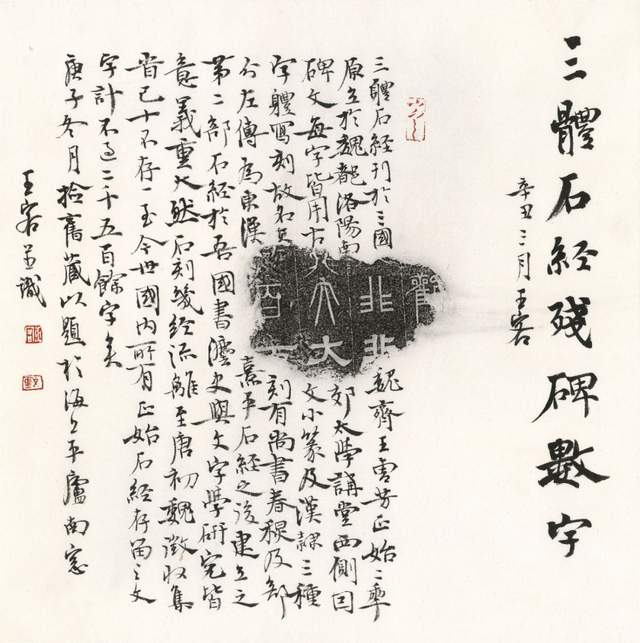 三體石经殘碑數字
辛丑三月王客
三體石经刊於三國魏齊王曹芳正始二年
原立於魏都洛陽南郊太学講堂西側因
碑文每字皆用古文小篆及漢隸三種
字體寫刻故名其刻有尚書春秋及部
分左傳為東漢熹平石经之後建立之
第二部石经於吾國書灋史與文字學研究皆
意義重大然石刻幾经流離至唐初魏徵收集
昔已十不存一至今世國内所有正始石经存留之文
字計不過二千五百餘字矣
庚子冬月拾舊藏以題於海上平廬南窓
王客並識
非非
大大